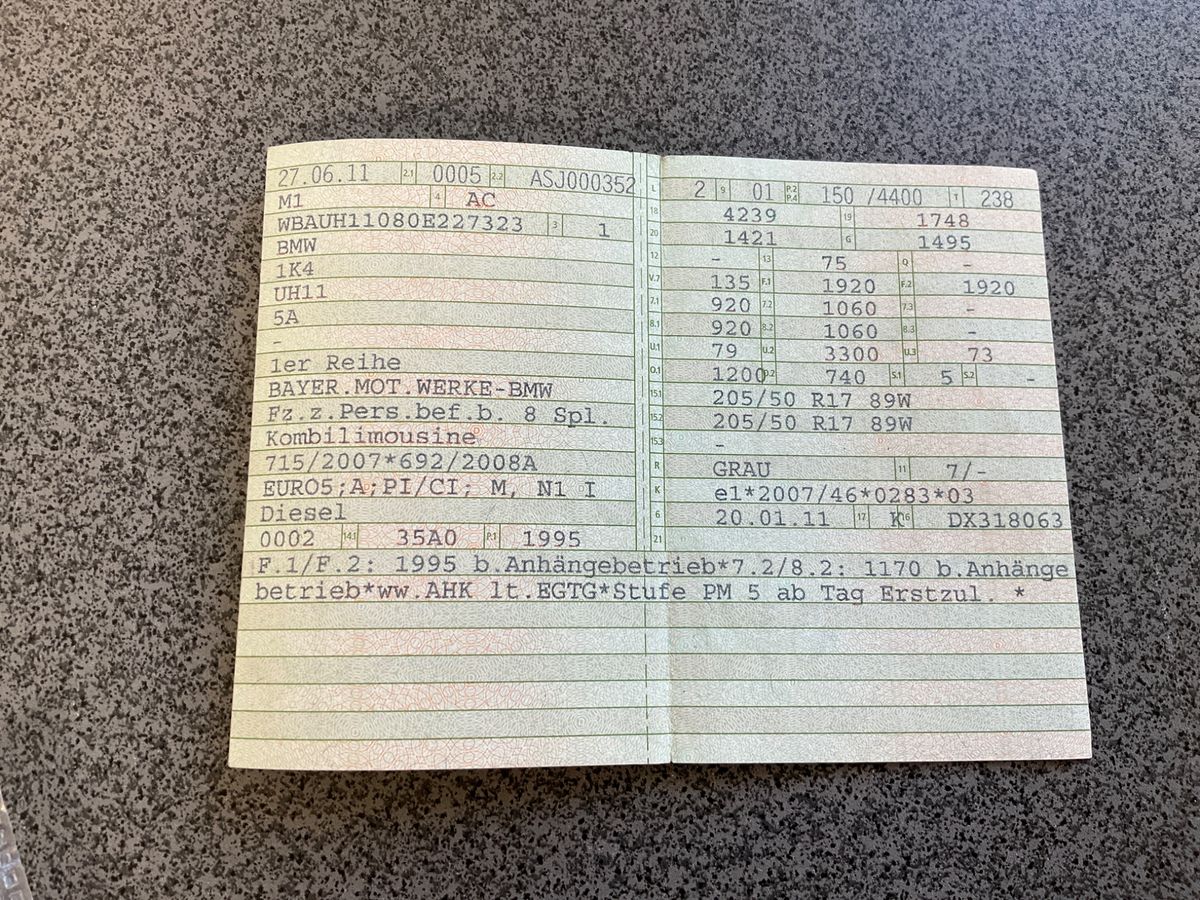 27.06.11 2.1 0005 2.2 ASJ000352
M1 4 AC
WBAUH11080E227323 3 1
BMW
1K4
UH11
5A
-
1er Reihe
BAYER.MOT.WERKE-BMW
Fz.z.Pers.bef.b. 8 Spl.
Kombilimousine
715/2007*692/2008A
EURO5;A;PI/CI; M, N1 I
Diesel
0002 14.1 35A0 P.1 1995
L 2 9 01 P.2 P.4 150 /4400 T 238
18 4239 19 1748
20 1421 G 1495
12 - 13 75 Q -
V.7 135 F.1 1920 F.2 1920
7.1 920 7.2 1060 7.3 -
8.1 920 8.2 1060 8.3 -
U.1 79 U.2 3300 U.3 73
O.1 1200 O.2 740 S.1 5 S.2 -
15.1 205/50 R17 89W
15.2 205/50 R17 89W
15.3 -
R GRAU 11 7/-
K e1*2007/46*0283*03
6 20.01.11 17 K 16 DX318063
21
F.1/F.2: 1995 b.Anhängebetrieb*7.2/8.2: 1170 b.Anhänge
betrieb*ww.AHK lt.EGTG*Stufe PM 5 ab Tag Erstzul. *